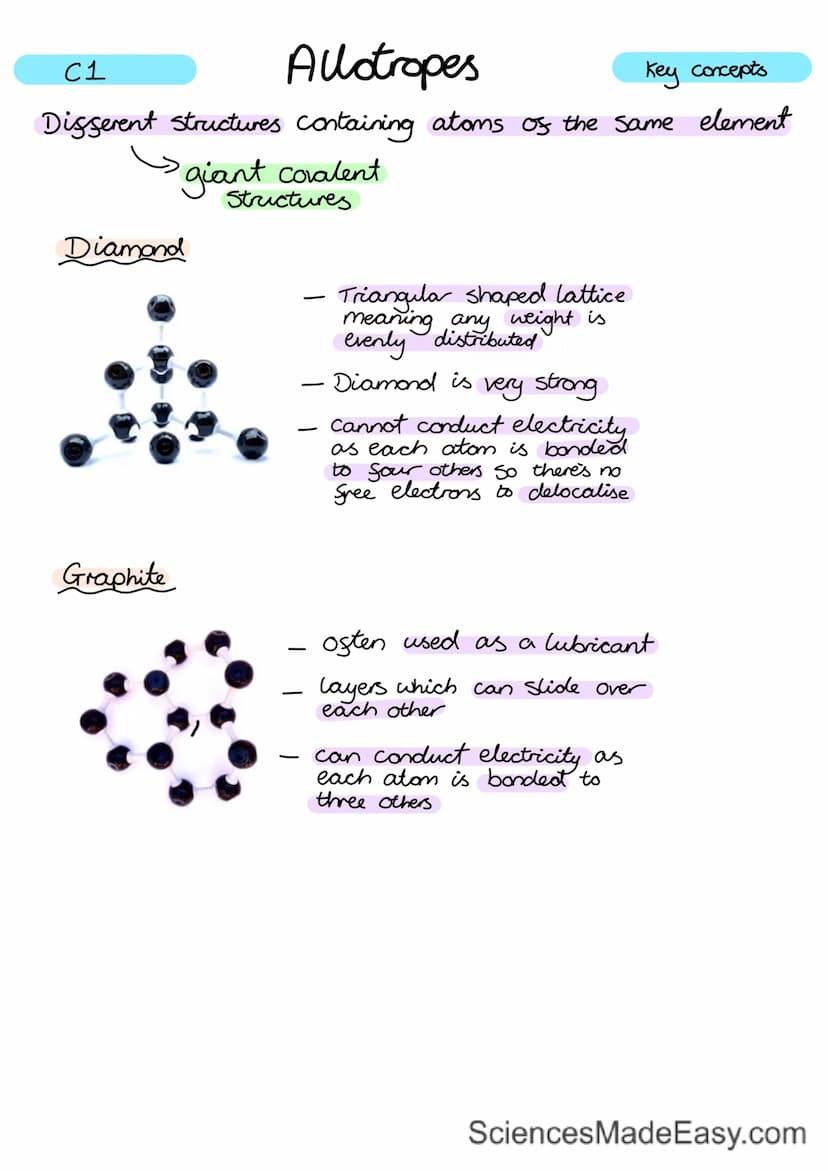 C1
Allotropes
Key concepts
Different structures containing atoms of the same element
giant covalent
structures
Diamond
- Triangular shaped lattice
meaning any weight is
evenly distributed
- Diamond is very strong
- cannot conduct electricity
as each atom is bonded
to four others so there's no
free electrons to delocalise
Graphite
- often used as a lubricant
- layers which can slide over
each other
- can conduct electricity as
each atom is bonded to
three others
SciencesMadeEasy.com